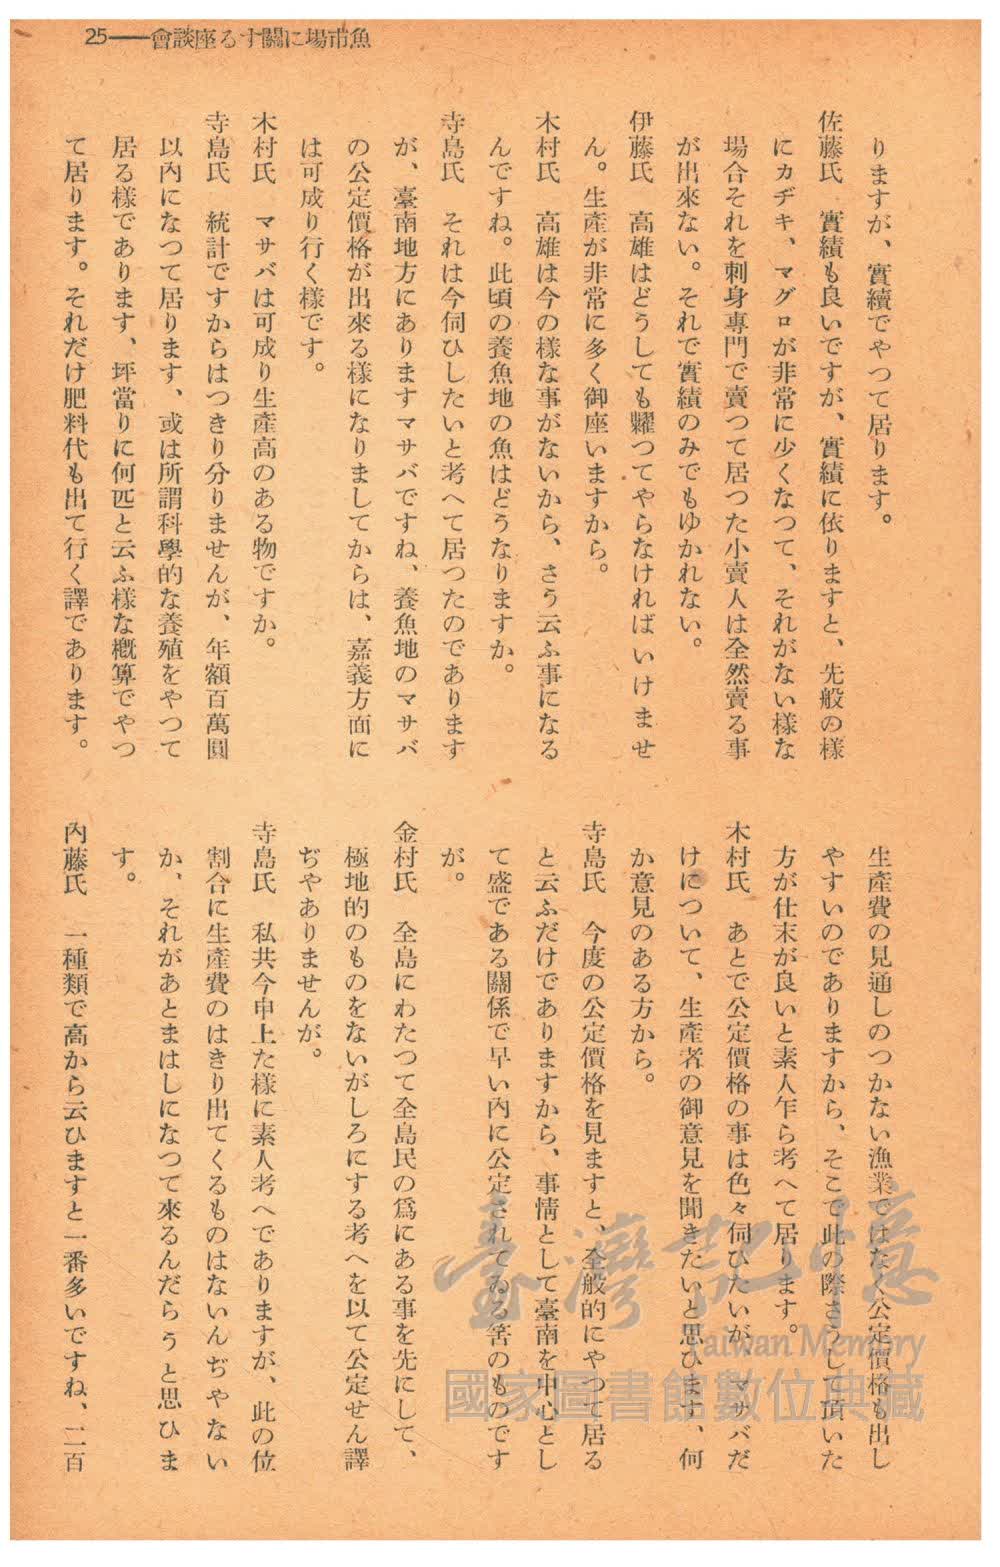 25——會談座るす關に場市魚
りますが、實績でやつて居ります。
佐藤氏　實績も良いですが、實績に依りますと、先般の様
にカヂキ、マグロが非常に少くなつて、それがない様な
場合それを刺身專門で賣つて居つた小賣人は全然賣る事
が出來ない。それで實績のみでもゆかれない。
伊藤氏　高雄はどうしても糶つてやらなければいけませ
ん。生産が非常に多く御座いますから。
木村氏　高雄は今の様な事がないから、さう云ふ事になる
んですね。此頃の養魚地の魚はどうなりますか。
寺島氏　それは今伺ひしたいと考へて居つたのであります
が、臺南地方にありますマサバですね、養魚地のマサバ
の公定價格が出來る様になりましてからは、嘉義方面に
は可成り行く様です。
木村氏　マサバは可成り生産高のある物ですか。
寺島氏　統計ですからはつきり分りませんが、年額百萬圓
以內になつて居ります、或は所謂科學的な養殖をやつて
居る様であります、坪當りに何匹と云ふ様な概算でやつ
て居ります。それだけ肥料代も出て行く譯であります。
生産費の見通しのつかない漁業ではなく公定價格も出し
やすいのでありますから、そこで此の際さうして頂いた
方が仕末が良いと素人乍ら考へて居ります。
木村氏　あとで公定價格の事は色々伺ひたいが、マサバだ
けについて、生産者の御意見を聞きたいと思ひます、何
か意見のある方から。
寺島氏　今度の公定價格を見ますと、全般的にやつて居る
と云ふだけでありますから、事情として臺南を中心とし
て盛である關係で早い內に公定されてゐる筈のものです
が。
金村氏　全島にわたつて全島民の爲にある事を先にして、
極地的のものをないがしろにする考へを以て公定せん譯
ぢやありませんが。
寺島氏　私共今申上た様に素人考へでありますが、此の位
割合に生産費のはきり出てくるものはないんぢやない
か、それがあとまはしになつて來るんだらうと思ひま
す。
內藤氏　一種類で高から云ひますと一番多いですね、二百
臺灣記憶
Taiwan Memory
國家圖書館數位典藏